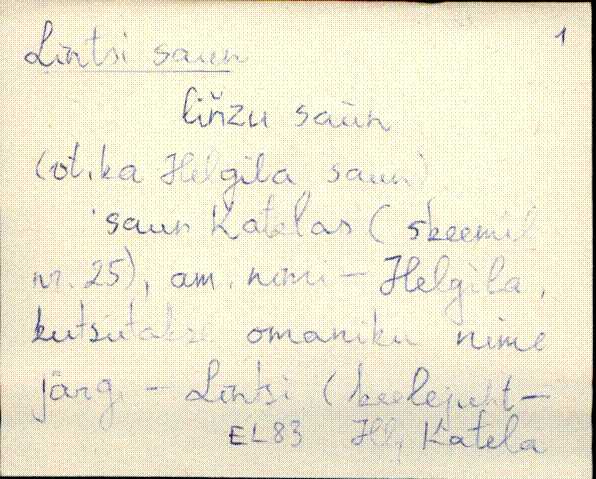 1
Lintsi saun
liňzu saùn
(vt. ka Helgila saun)
saun Katelas (skeemil
nr. 25), am. nimi - Helgila,
kutsutakse omaniku nime
järgi - Lintsi (keelejuht-
EL83 Hlj Katela